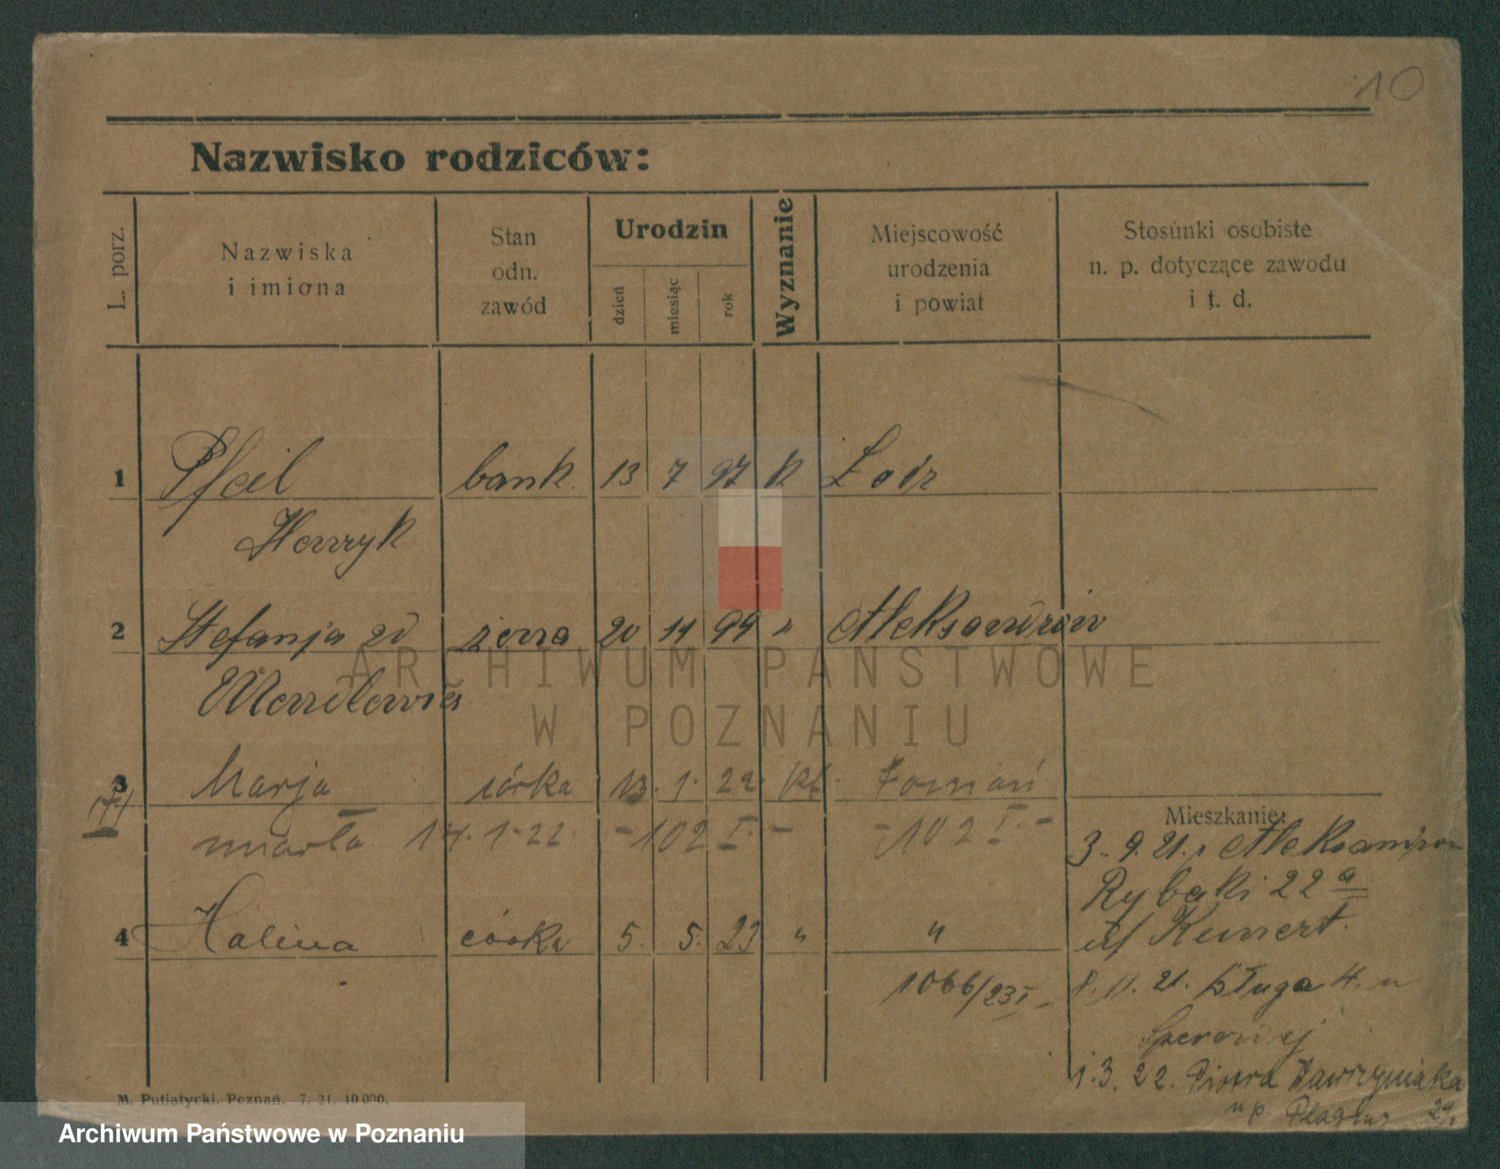 10
Nazwisko rodziców:
L. porz.
Nazwiska
i imiona
Stan
odn.
zawód
Urodzin
dzień
miesiąc
rok
Wyznanie
Miejscowość
urodzenia
i powiat
Stosunki osobiste
n. p. dotyczące zawodu
i t. d.
1 Pfeil bank. 13 7 97 k Łódź
Henryk
2 Stefanja zd żona 20 11 99 " Aleksandrów
ARCHIWUM PAŃSTWOWE
W POZNANIU
3 Marja córka 13. 1. 22. kt. Poznań
umarła 14.1.22. - 102 I. - - 102 I. -
Mieszkanie:
3. 9. 21. z Aleksandrowa
Rybaki 22 a
4 Halina córka 5. 5. 23 " "
1066/23 I -
8. 11. 21. Długa 4. u
1. 3. 22. Piotra Wawrzyniaka
M. Putiatycki, Poznań. 7. 21. 10 000.
Archiwum Państwowe w Poznaniu